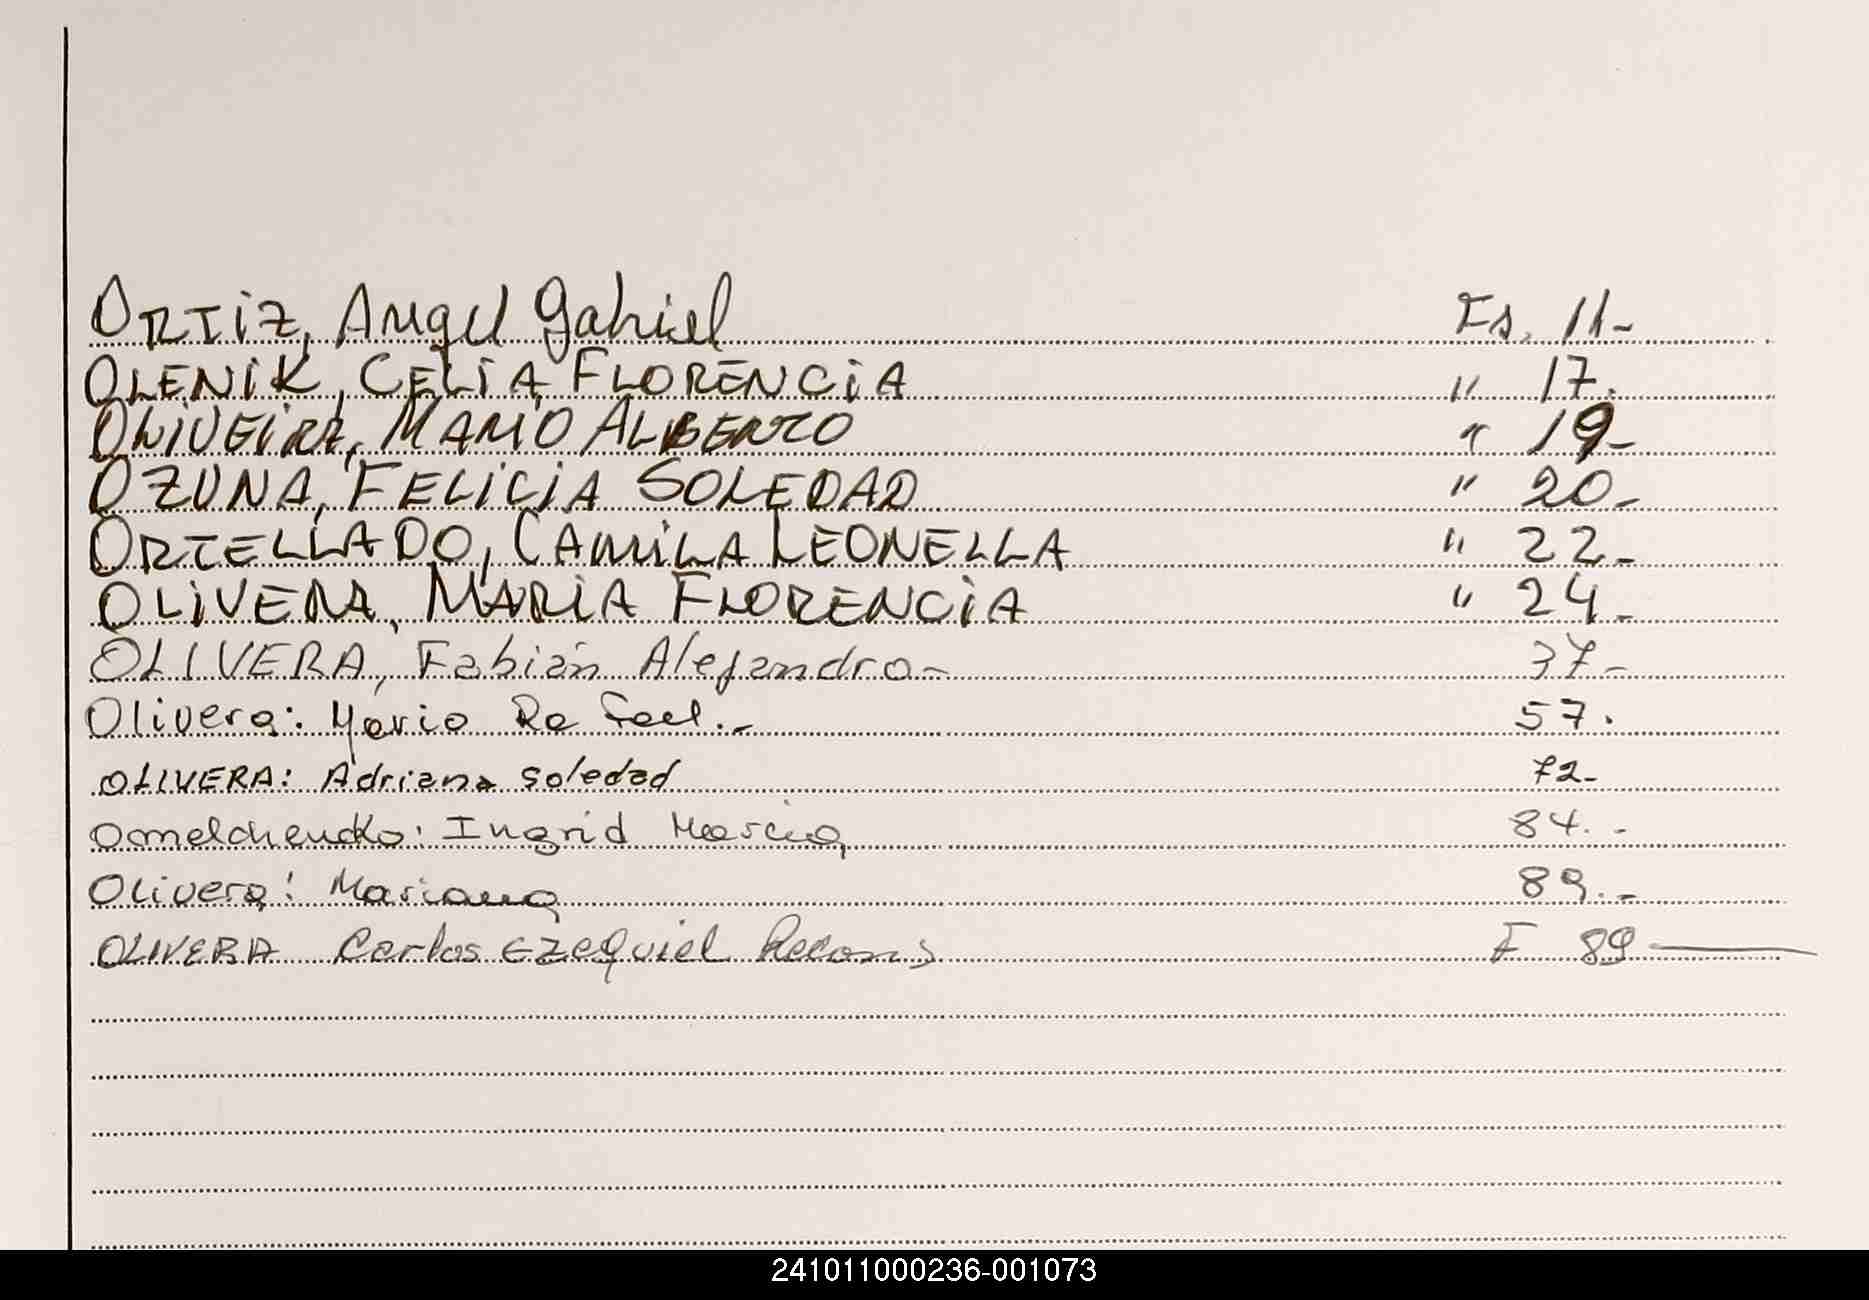 ORTIZ, Angel Gabriel Fs. 11-
OLENIK, CELIA FLORENCIA " 17.
OLIVEIRA, MARIO ALBERTO " 19-
OZUNA, FELICIA SOLEDAD " 20-
ORTELLADO, CAMILA LEONELLA " 22-
OLIVERA, MARIA FLORENCIA " 24-
OLIVERA, Fabián Alejandro- 37-
Olivera: Mario Rafael.- 57.
OLIVERA: Adriana Soledad 72-
Omelchenko: Ingrid Marcia 84.-
Olivera: Mariana 89.-
OLIVERA Carlos Ezequiel F 89
241011000236-001073